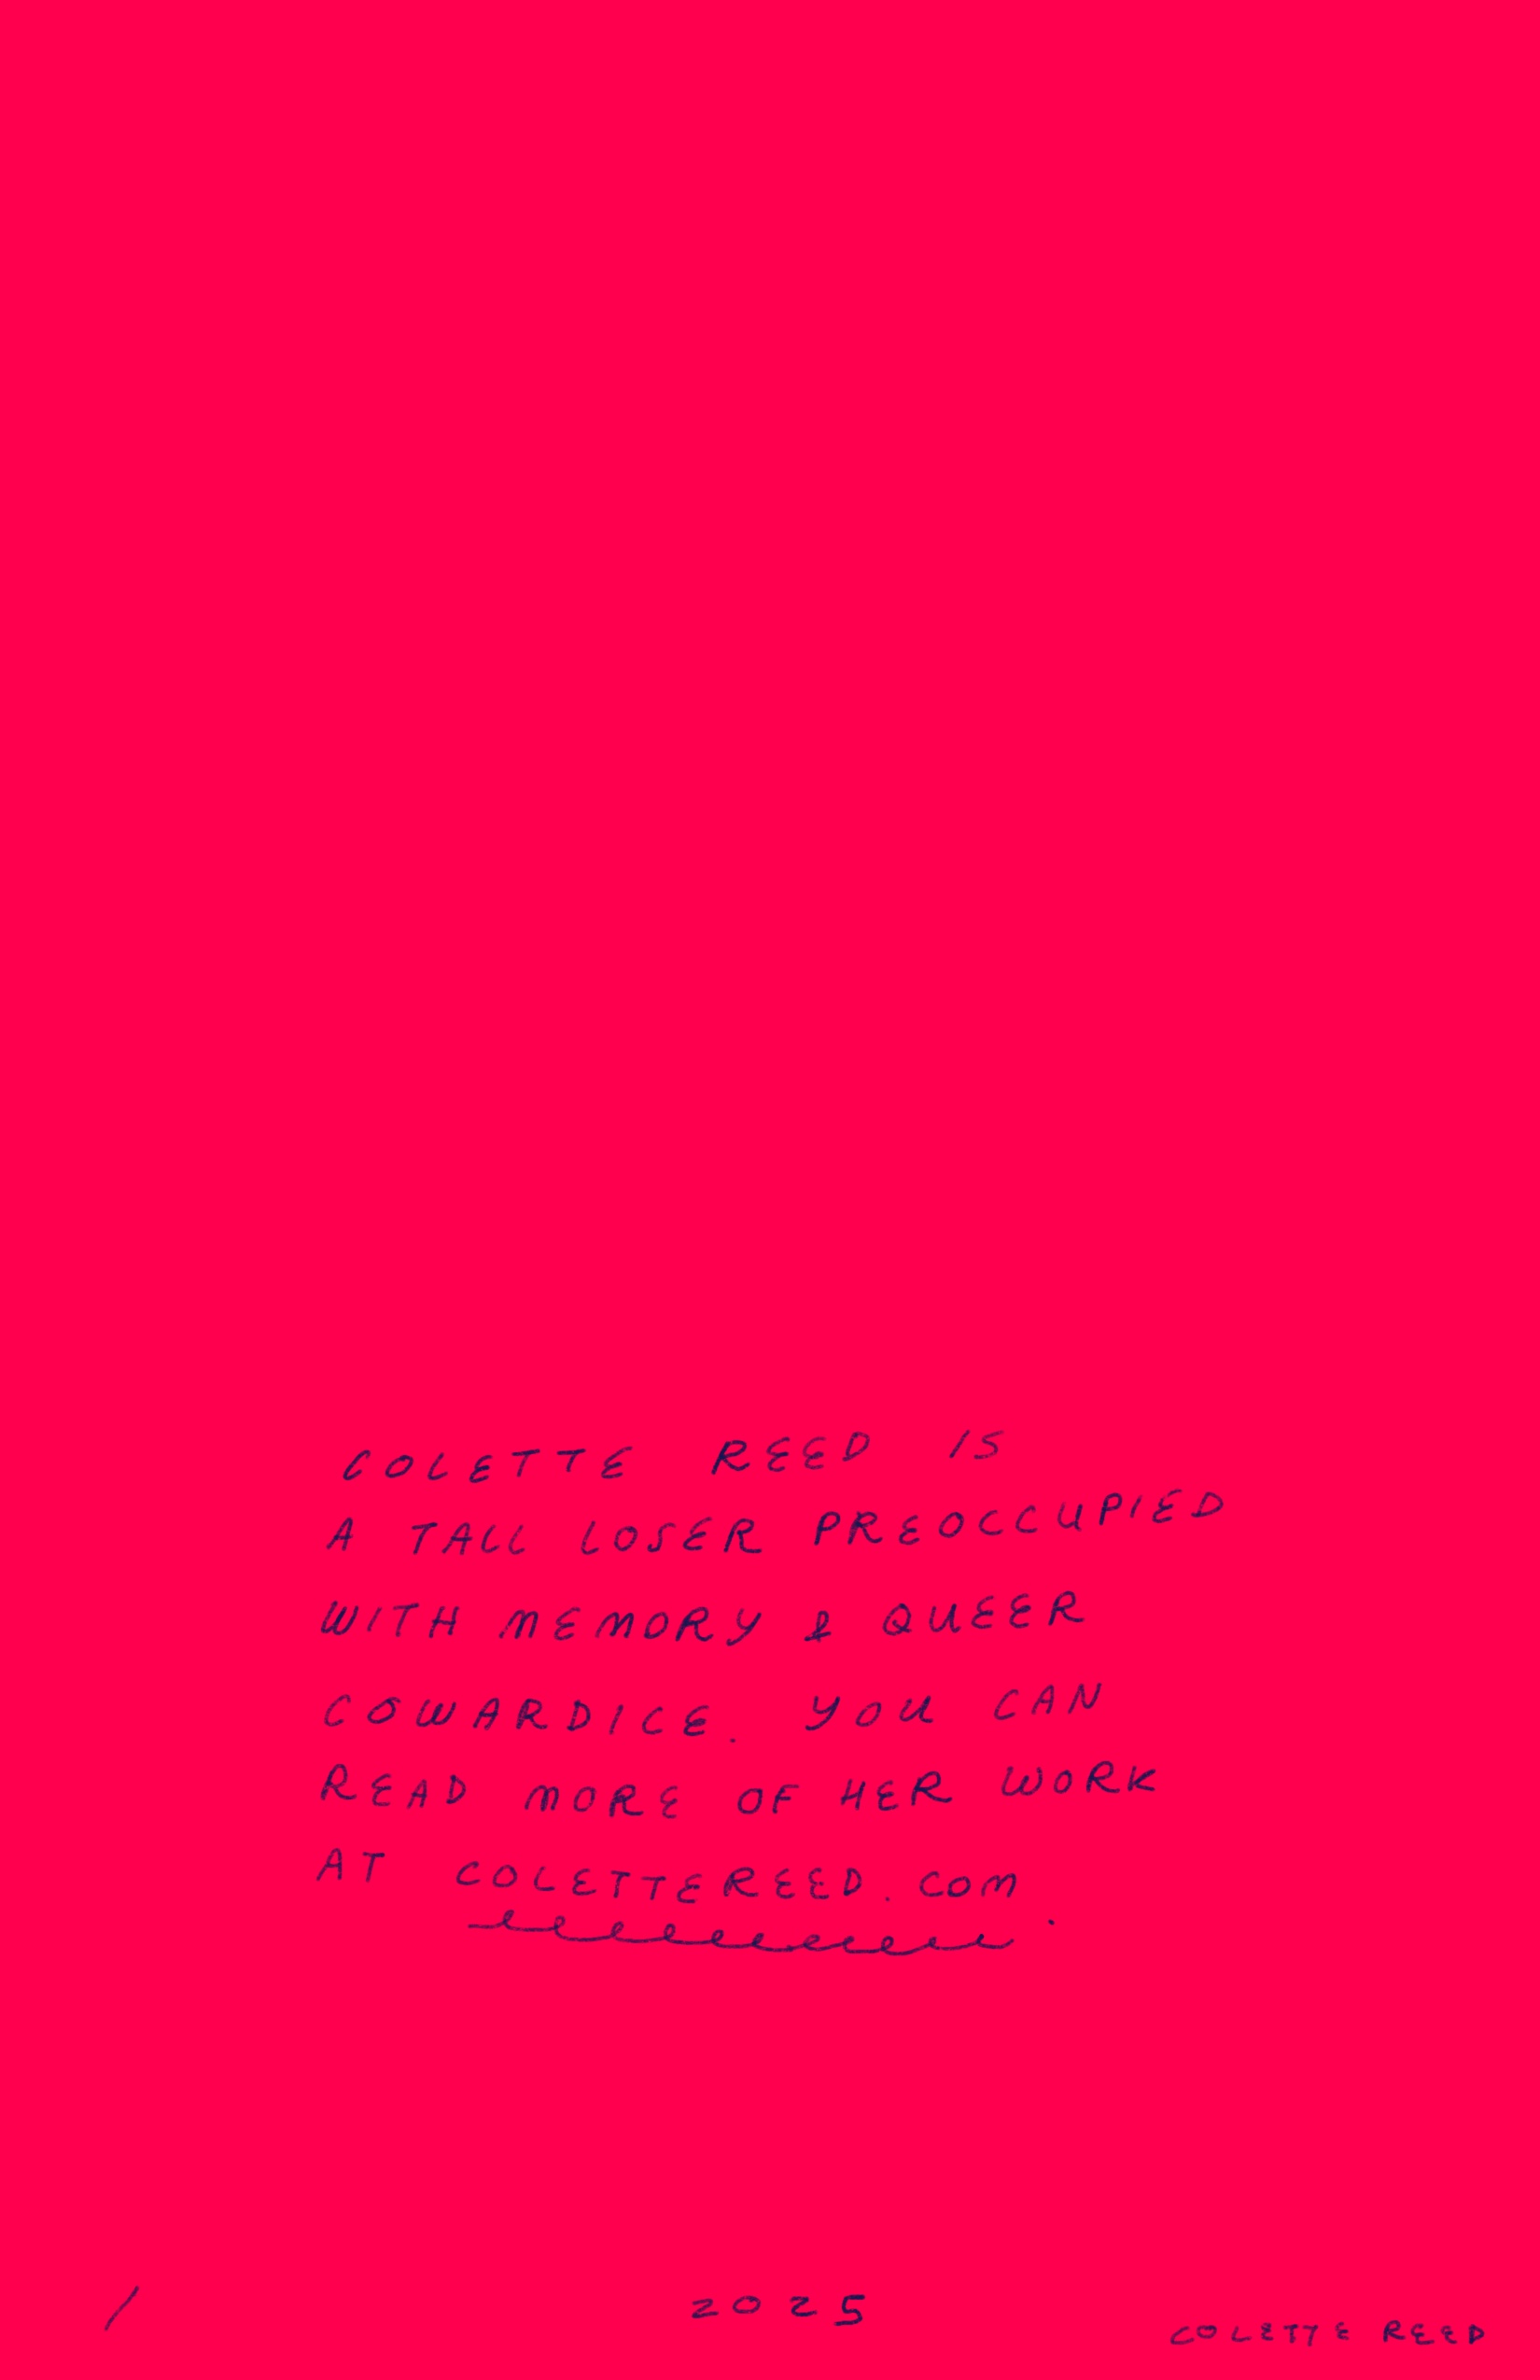 COLETTE REED IS
A TALL LOSER PREOCCUPIED
WITH MEMORY & QUEER
COWARDICE. YOU CAN
READ MORE OF HER WORK
AT COLETTEREED.COM.
/ 2025 COLETTE REED